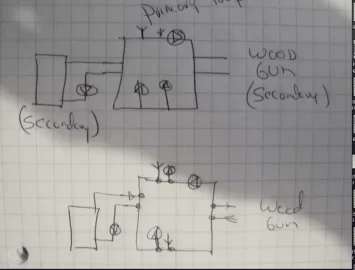 Primary loop
WOOD
GUN
(Secondary)
(Secondary)
Wood
Gun